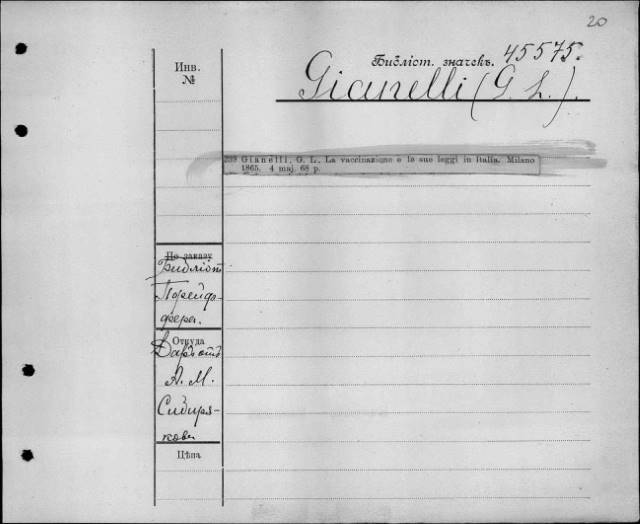 20
Инв.
№
Библіот. значекъ. 45575.
Gianelli (G. L.).
239 Gianelli, G. L. La vaccinazione e le sue leggi in Italia. Milano
1865. 4 maj. 68 p.
По заказу
Библіот.
Порейф-
фера.
Откуда
Даръ отъ
А. М.
Сибиря-
кова
Цѣна